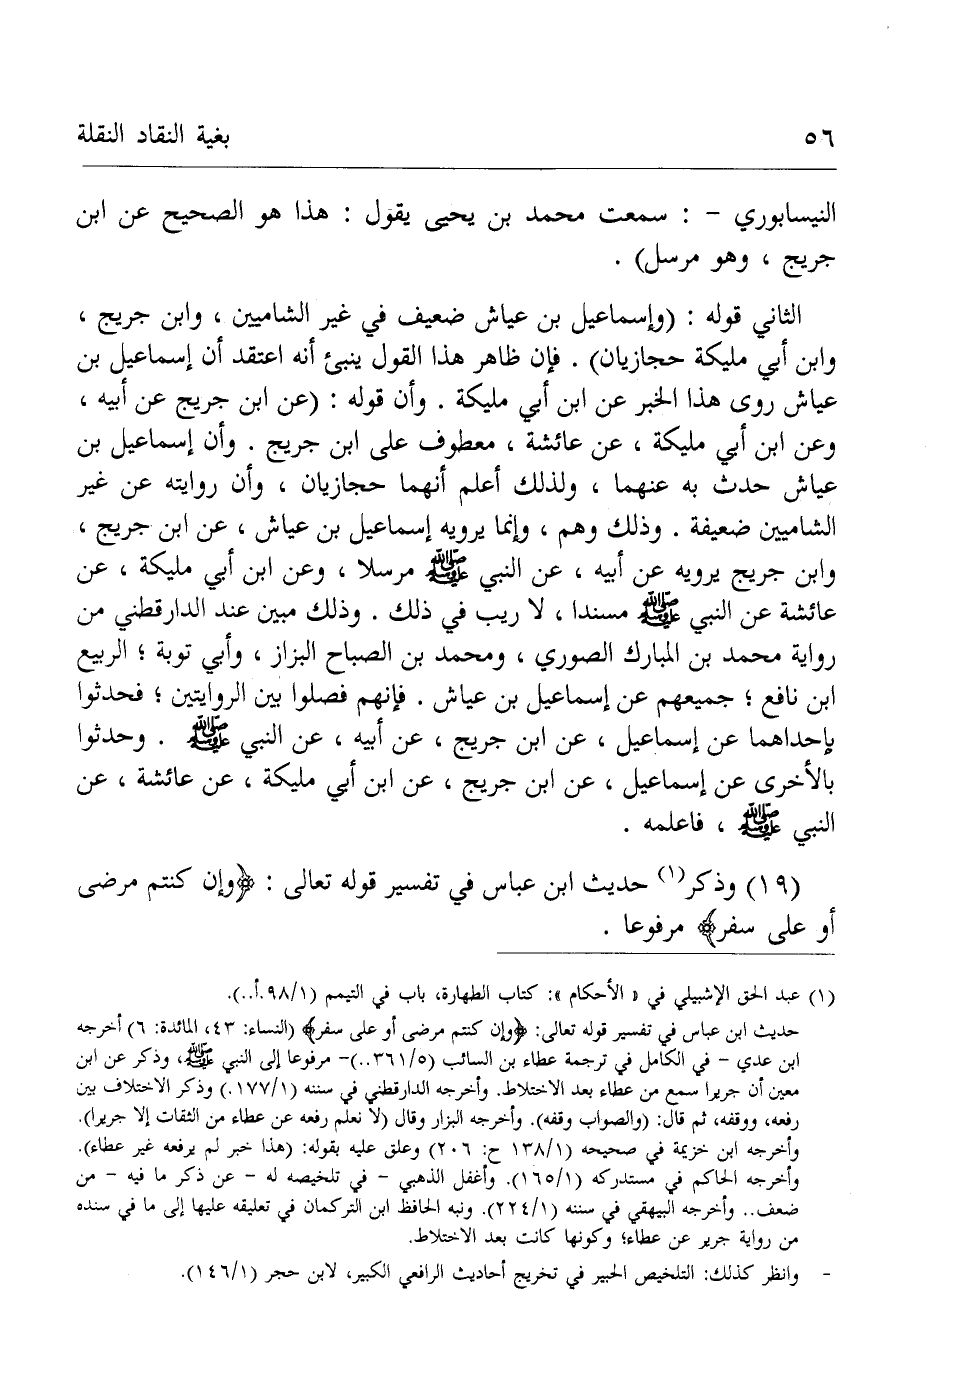 ٥٦ بغية النقاد النقلة
النيسابوري - : سمعت محمد بن يحيى يقول : هذا هو الصحيح عن ابن
جريج ، وهو مرسل) .
الثاني قوله : (وإسماعيل بن عياش ضعيف في غير الشاميين ، وابن جريج ،
وابن أبي مليكة حجازيان) . فإن ظاهر هذا القول ينبئ أنه اعتقد أن إسماعيل بن
عياش روى هذا الخبر عن ابن أبي مليكة . وأن قوله : (عن ابن جريج عن أبيه ،
وعن ابن أبي مليكة ، عن عائشة ، معطوف على ابن جريج . وأن إسماعيل بن
عياش حدث به عنهما ، ولذلك أعلم أنهما حجازيان ، وأن روايته عن غير
الشاميين ضعيفة . وذلك وهم ، وإنما يرويه إسماعيل بن عياش ، عن ابن جريج ،
وابن جريج يرويه عن أبيه ، عن النبي ﷺ مرسلا ، وعن ابن أبي مليكة ، عن
عائشة عن النبي ﷺ مسندا ، لا ريب في ذلك . وذلك مبين عند الدارقطني من
رواية محمد بن المبارك الصوري ، ومحمد بن الصباح البزاز ، وأبي توبة ؛ الربيع
ابن نافع ؛ جميعهم عن إسماعيل بن عياش . فإنهم فصلوا بين الروايتين ؛ فحدثوا
بإحداهما عن إسماعيل ، عن ابن جريج ، عن أبيه ، عن النبي ﷺ . وحدثوا
بالأخرى عن إسماعيل ، عن ابن جريج ، عن ابن أبي مليكة ، عن عائشة ، عن
النبي ﷺ ، فاعلمه .
(١٩) وذكر(١) حديث ابن عباس في تفسير قوله تعالى : ﴿وإن كنتم مرضى
أو على سفر﴾ مرفوعا .
(١) عبد الحق الإشبيلي في « الأحكام »: كتاب الطهارة، باب في التيمم (٩٨/١.أ..).
حديث ابن عباس في تفسير قوله تعالى: ﴿وإن كنتم مرضى أو على سفر﴾ (النساء: ٤٣، المائدة: ٦) أخرجه
ابن عدي - في الكامل في ترجمة عطاء بن السائب (٣٦١/٥..)- مرفوعا إلى النبي ﷺ، وذكر عن ابن
معين أن جريرا سمع من عطاء بعد الاختلاط. وأخرجه الدارقطني في سننه (١٧٧/١.) وذكر الاختلاف بين
رفعه، ووقفه، ثم قال: (والصواب وقفه). وأخرجه البزار وقال (لا نعلم رفعه عن عطاء من الثقات إلا جريرا).
وأخرجه ابن خزيمة في صحيحه (١٣٨/١ ح: ٢٠٦) وعلق عليه بقوله: (هذا خبر لم يرفعه غير عطاء).
وأخرجه الحاكم في مستدركه (١٦٥/١). وأغفل الذهبي - في تلخيصه له - عن ذكر ما فيه - من
ضعف.. وأخرجه البيهقي في سننه (٢٢٤/١). ونبه الحافظ ابن التركمان في تعليقه عليها إلى ما في سنده
من رواية جرير عن عطاء؛ وكونها كانت بعد الاختلاط.
- وانظر كذلك: التلخيص الحبير في تخريج أحاديث الرافعي الكبير، لابن حجر (١٤٦/١).